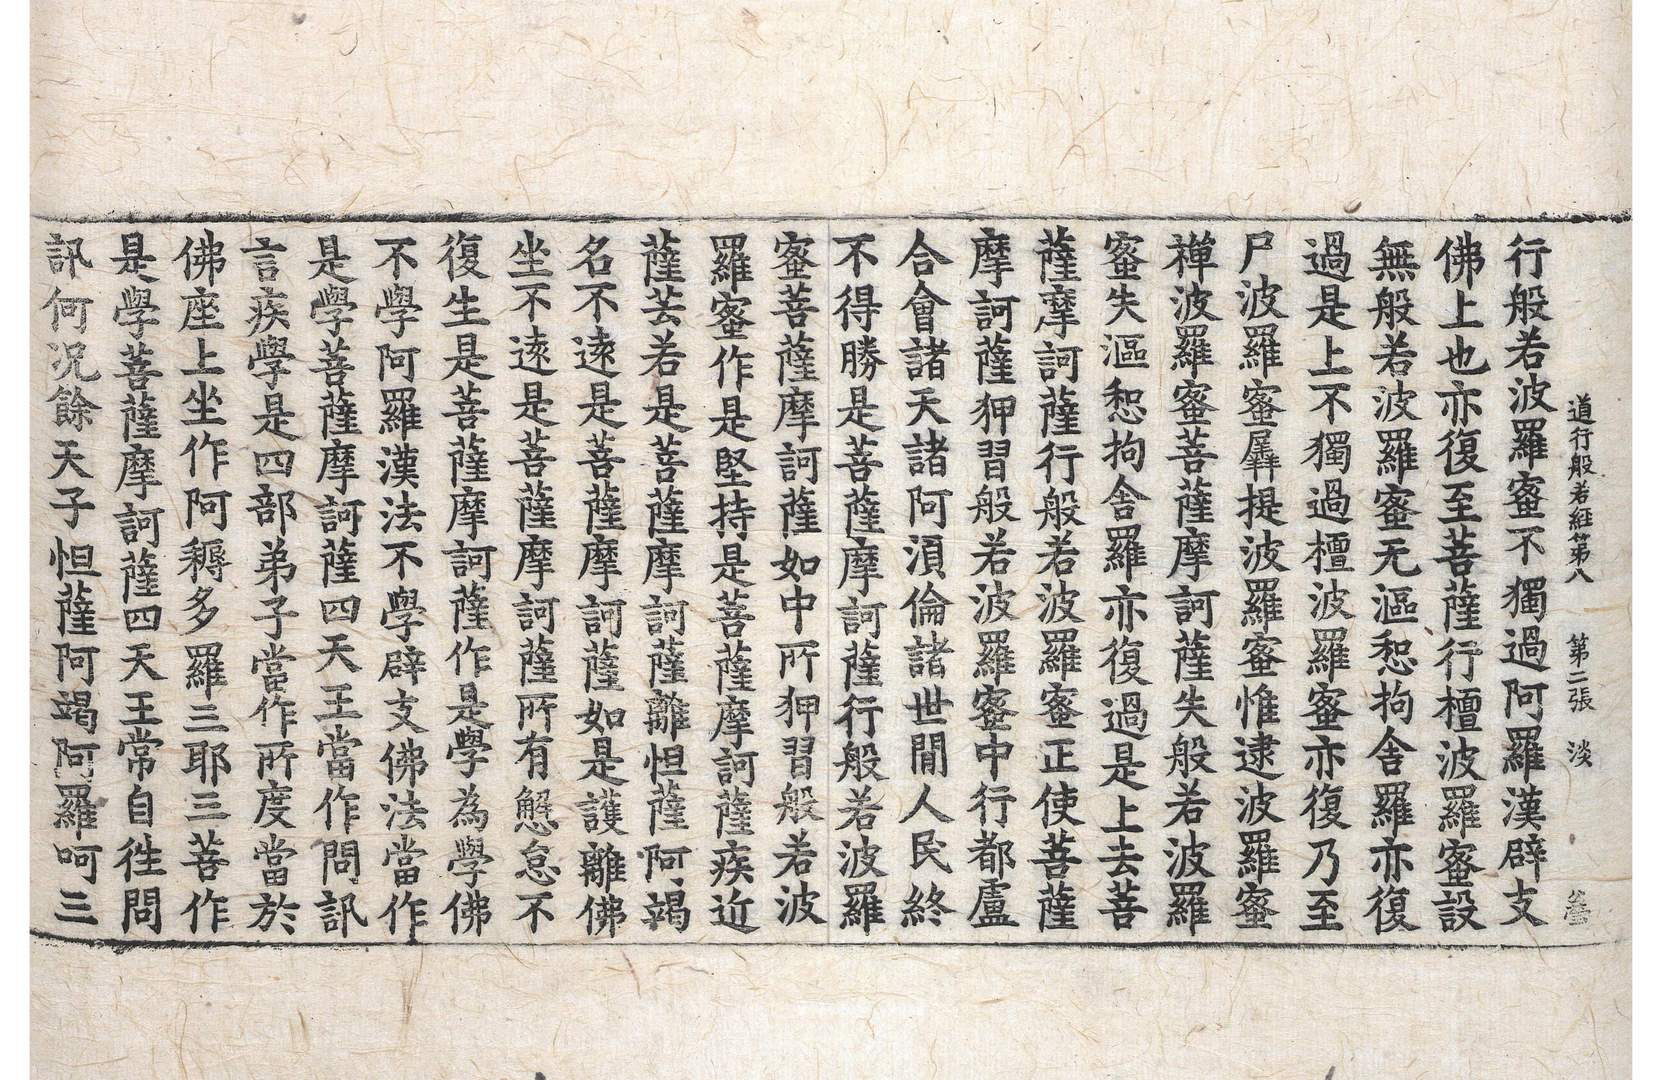 道行般若經第八 第二張 淡
行般若波羅蜜不獨過阿羅漢辟支
佛上也亦復至菩薩行檀波羅蜜設
無般若波羅蜜无漚惒拘舍羅亦復
過是上不獨過檀波羅蜜亦復乃至
尸波羅蜜羼提波羅蜜惟逮波羅蜜
禅波羅蜜菩薩摩訶薩失般若波羅
蜜失漚惒拘舍羅亦復過是上去菩
薩摩訶薩行般若波羅蜜正使菩薩
摩訶薩狎習般若波羅蜜中行都盧
合會諸天諸阿湏倫諸世間人民終
不得勝是菩薩摩訶薩行般若波羅
蜜菩薩摩訶薩如中所狎習般若波
羅蜜作是堅持是菩薩摩訶薩疾近
薩芸若是菩薩摩訶薩離怛薩阿竭
名不遠是菩薩摩訶薩如是護離佛
坐不遠是菩薩摩訶薩所有懈怠不
復生是菩薩摩訶薩作是學為學佛
不學阿羅漢法不學辟支佛法當作
是學菩薩摩訶薩四天王當作問訊
言疾學是四部弟子當作所度當於
佛座上坐作阿耨多羅三耶三菩作
是學菩薩摩訶薩四天王常自徃問
訊何况餘天子怛薩阿竭阿羅呵三